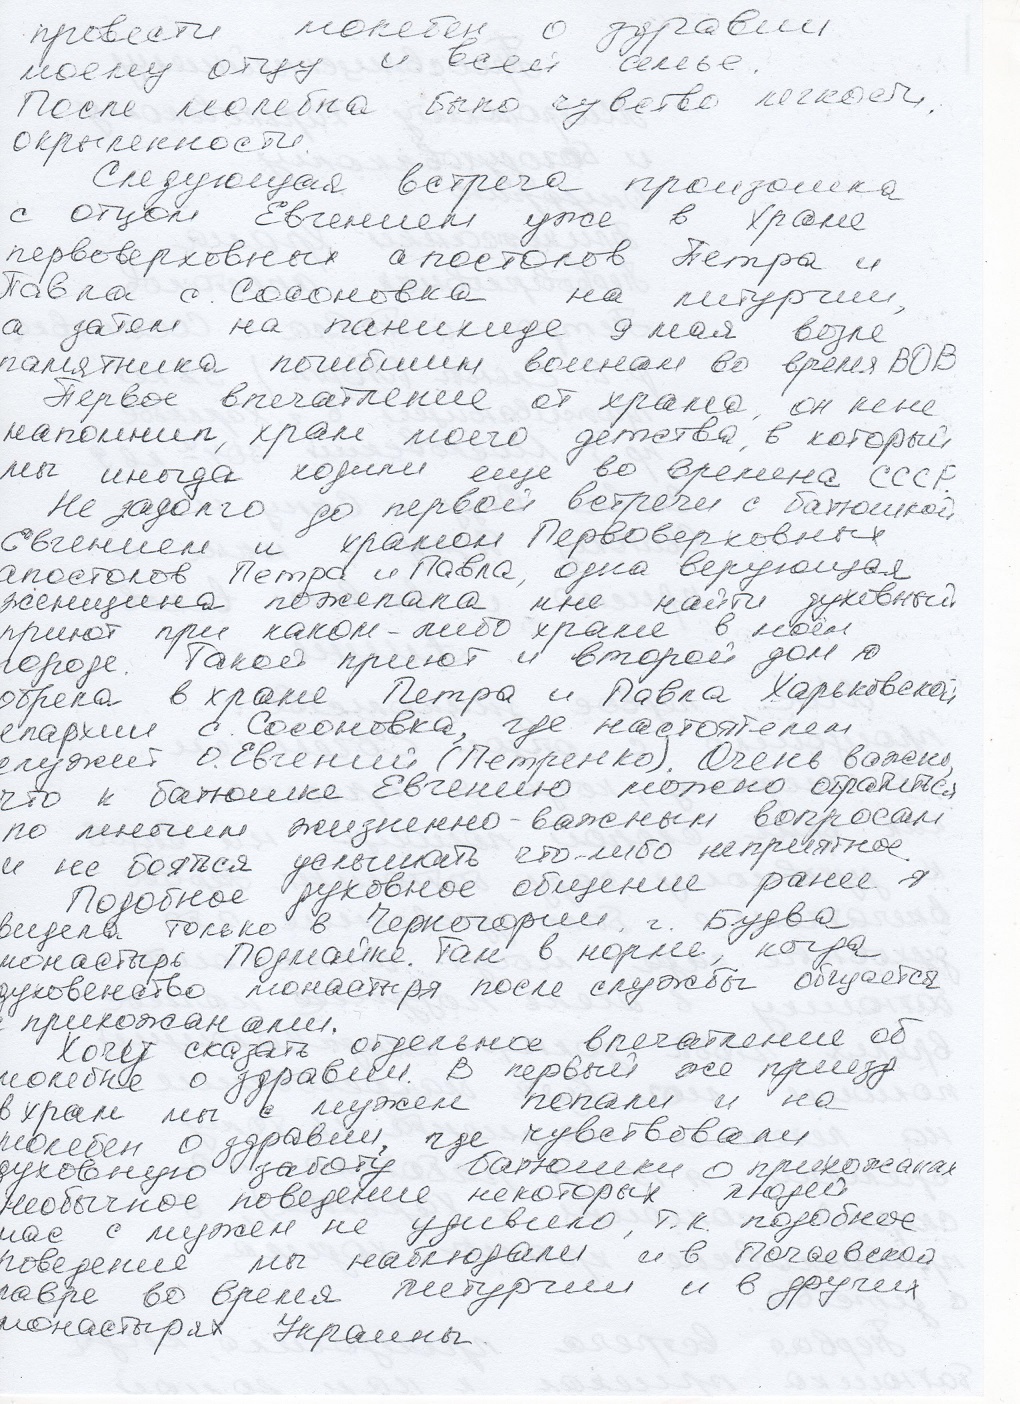 провести молебен о здравии
моему отцу и всей семье.
После молебна было чувство легкости,
окрыленности.
Следующая встреча произошла
с отцом Евгением уже в храме
первоверховных апостолов Петра и
Павла с. Сосоновка на литургии,
а затем на панихиде 9 мая возле
памятника погибшим воинам во время ВОВ
Первое впечатление от храма, он мне
напомнил, храм моего детства, в который
мы иногда ходили еще во времена СССР.
Не задолго до первой встречи с батюшкой
Евгением и храмом Первоверховных
апостолов Петра и Павла, одна верующая
женщина пожелала мне найти духовный
приют при каком-либо храме в моём
городе. Такой приют и второй дом я
обрела в храме Петра и Павла Харьковской
епархии с. Сосоновка, где настоятелем
служит О. Евгений (Петренко). Очень важно,
что к батюшке Евгению можно обратится
по многим жизненно-важным вопросам
и не бояться услышать что-либо неприятное.
Подобное духовное общение ранее я
видела только в Черногории, г. Будва
монастырь Подмайне. Там в норме, когда
духовенство монастыря после службы общается
с прихожанами.
Хочу сказать отдельное впечатление об
молебне о здравии. В первый же приезд
в храм мы с мужем попали и на
молебен о здравии, где чувствовали
духовную заботу батюшки о прихожанах
необычное поведение некоторых людей
нас с мужем не удивило, т.к. подобное
поведение мы наблюдали и в Почаевской
лавре во время литургии и в других
монастырях Украины.